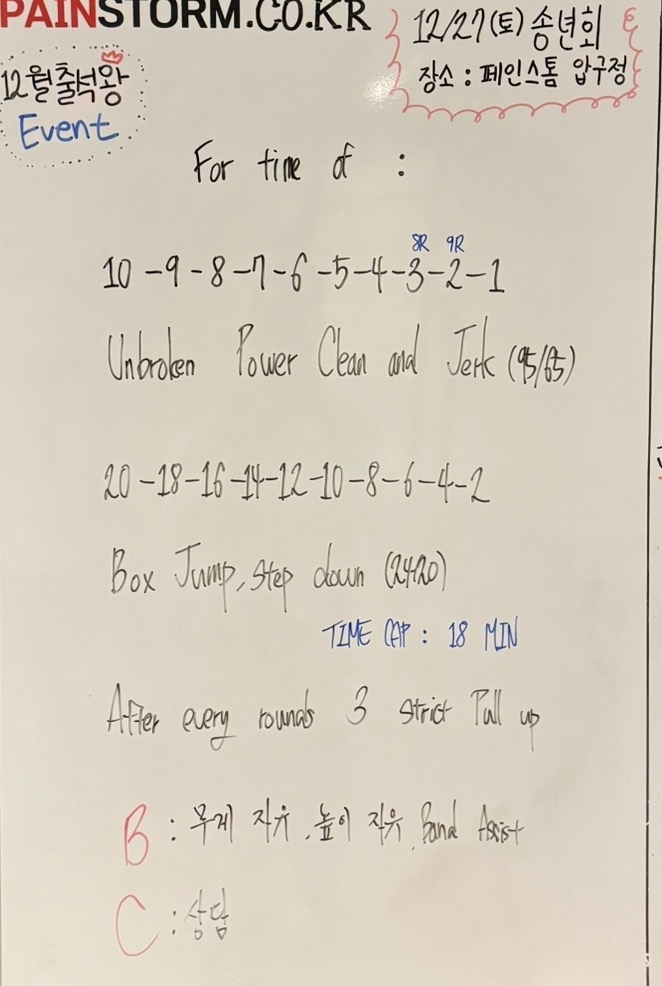 PAINSTORM.CO.KR
12/27(토) 송년회
장소 : 페인스톰 압구정
12월 출석왕
Event
For time of :
8R 9R
10-9-8-7-6-5-4-3-2-1
Unbroken Power Clean and Jerk (95/65)
20-18-16-14-12-10-8-6-4-2
Box Jump, Step down (24/20)
TIME CAP : 18 MIN
After every rounds 3 strict Pull up
B : 무게 자유, 높이 자유, Band Assist
C : 상담